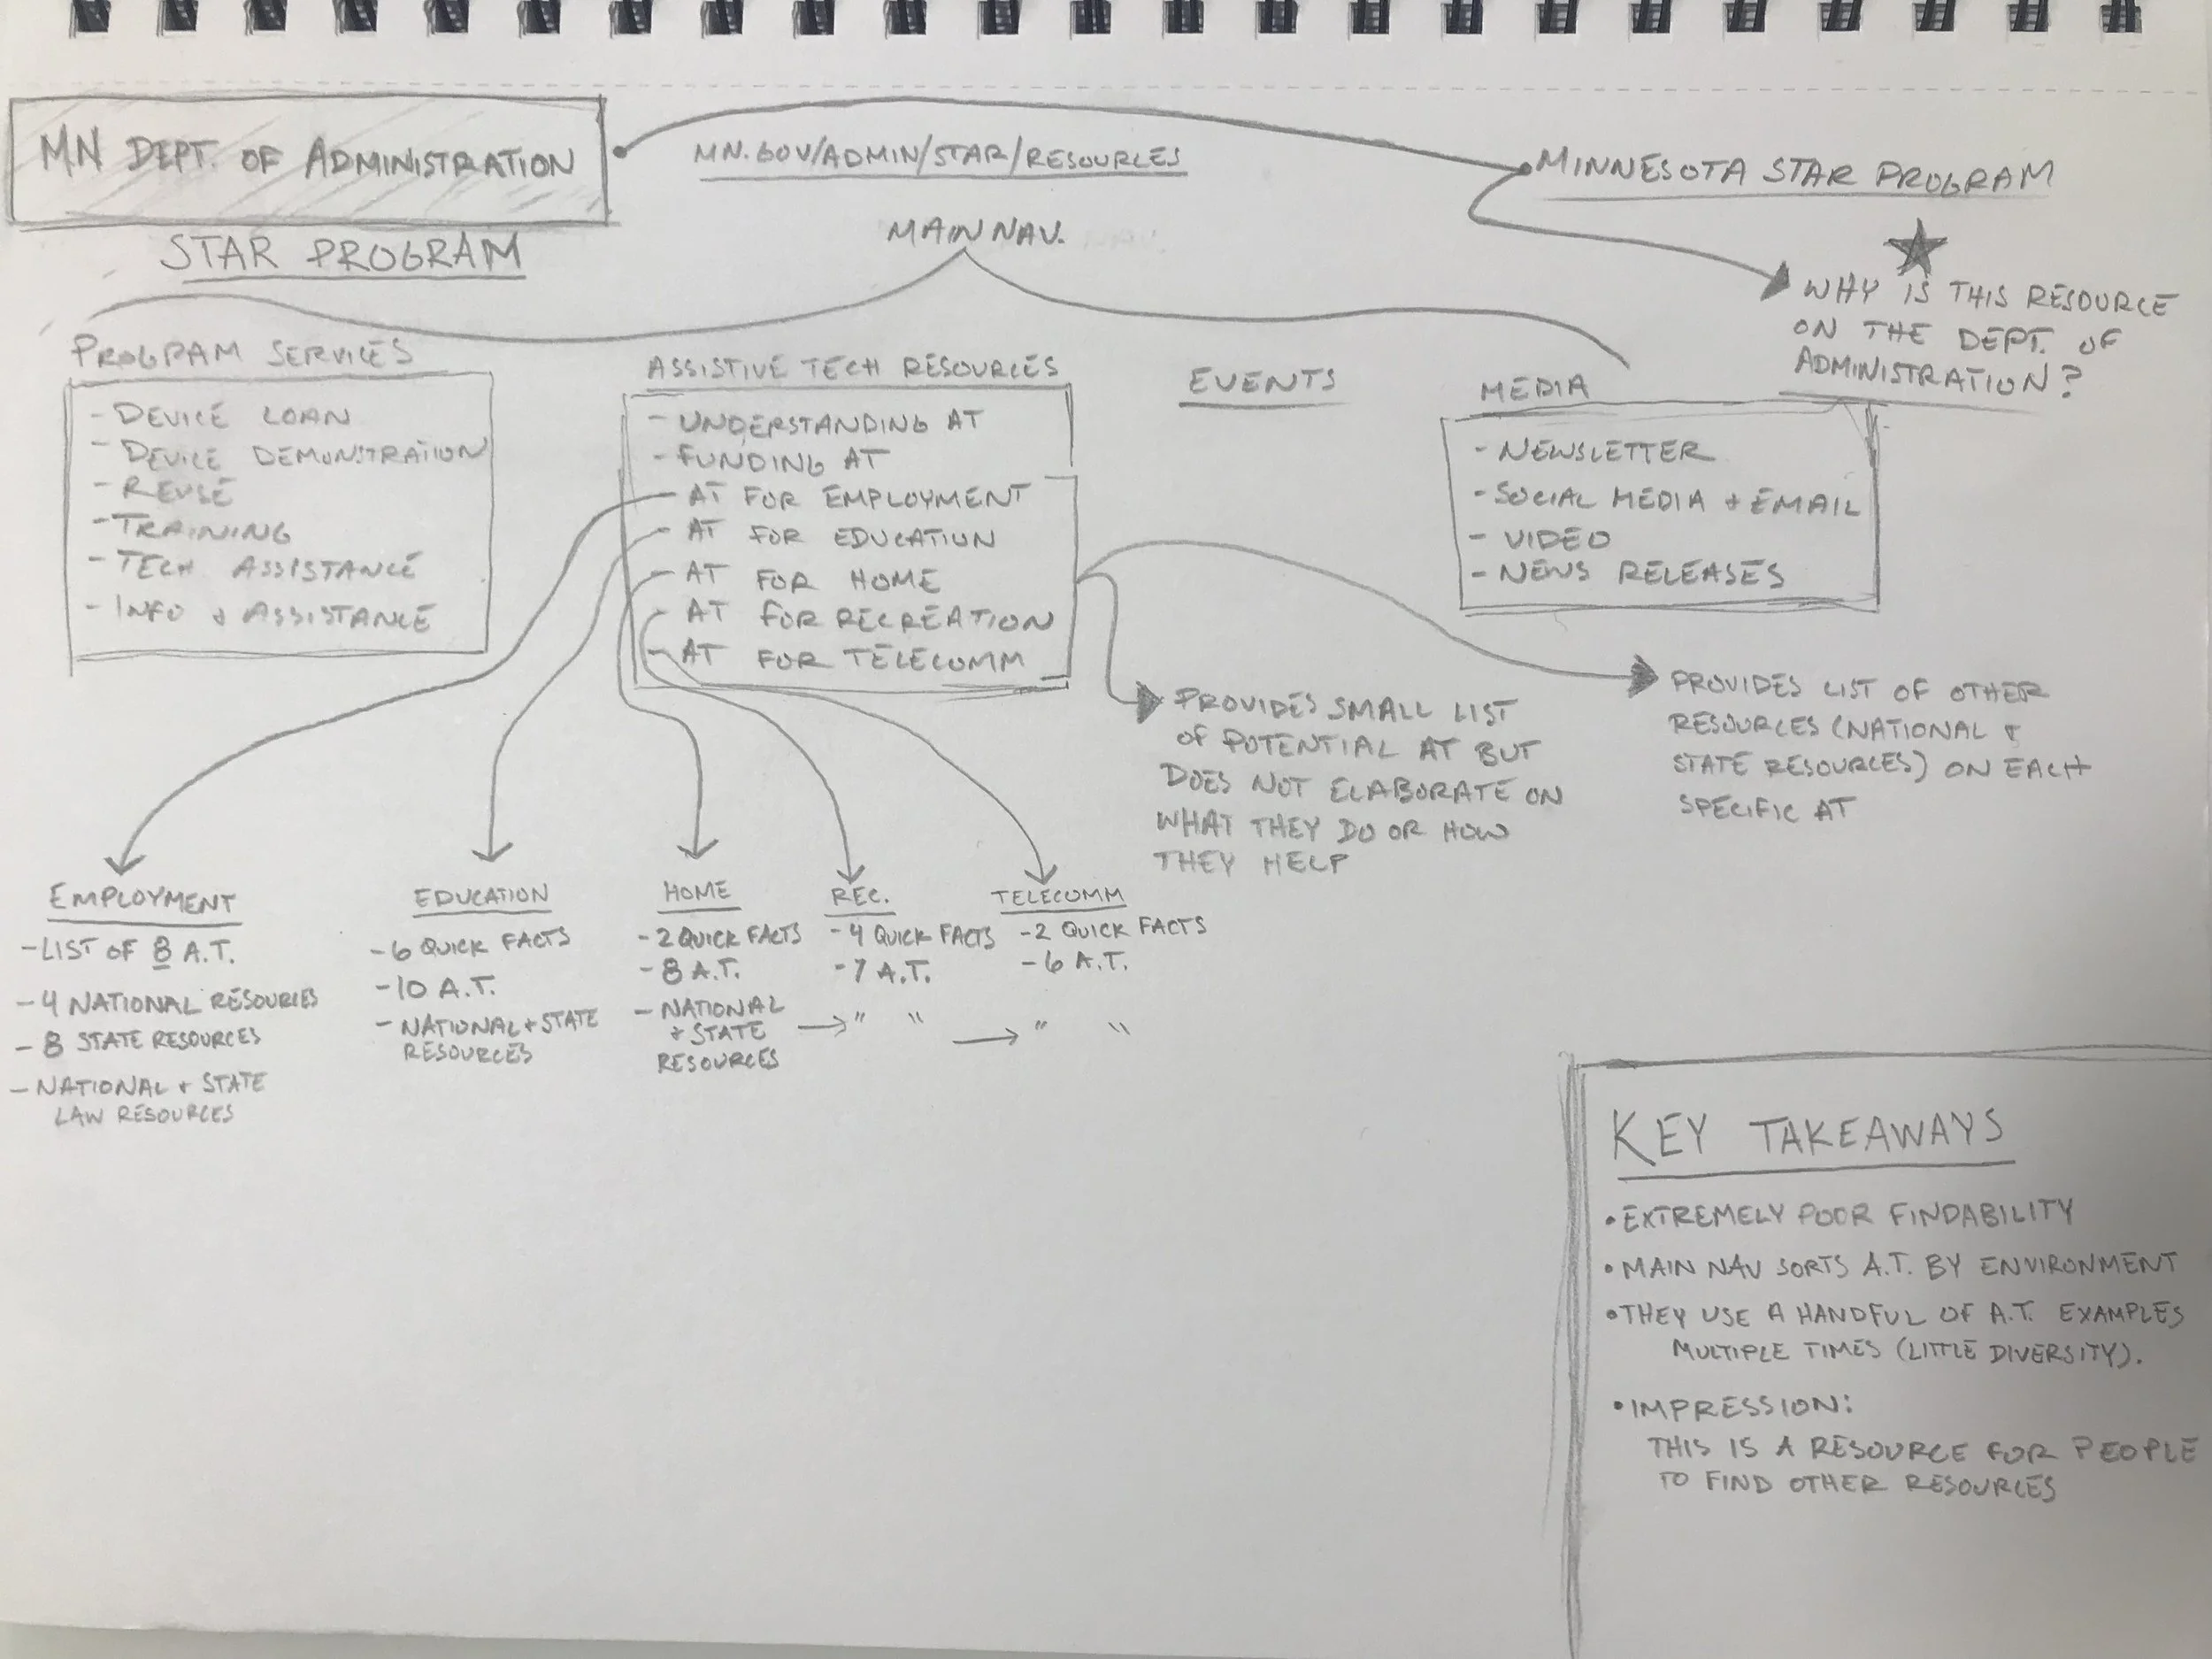 MN DEPT. OF ADMINISTRATION
STAR PROGRAM
MN.GOV/ADMIN/STAR/RESOURCES
MINNESOTA STAR PROGRAM
WHY IS THIS RESOURCE
ON THE DEPT. OF
ADMINISTRATION?
MAIN NAV.
PROGRAM SERVICES
- DEVICE LOAN
- DEVICE DEMONSTRATION
- REUSE
- TRAINING
- TECH ASSISTANCE
- INFO + ASSISTANCE
ASSISTIVE TECH RESOURCES
- UNDERSTANDING AT
- FUNDING AT
- AT FOR EMPLOYMENT
- AT FOR EDUCATION
- AT FOR HOME
- AT FOR RECREATION
- AT FOR TELECOMM
EVENTS
MEDIA
- NEWSLETTER
- SOCIAL MEDIA + EMAIL
- VIDEO
- NEWS RELEASES
PROVIDES SMALL LIST
OF POTENTIAL AT BUT
DOES NOT ELABORATE ON
WHAT THEY DO OR HOW
THEY HELP
PROVIDES LIST OF OTHER
RESOURCES (NATIONAL &
STATE RESOURCES) ON EACH
SPECIFIC AT
EMPLOYMENT
- LIST OF 8 A.T.
- 4 NATIONAL RESOURCES
- 8 STATE RESOURCES
- NATIONAL + STATE
LAW RESOURCES
EDUCATION
- 6 QUICK FACTS
- 10 A.T.
- NATIONAL + STATE
RESOURCES
HOME
- 2 QUICK FACTS
- 8 A.T.
- NATIONAL
+ STATE
RESOURCES
REC.
- 4 QUICK FACTS
- 7 A.T.
→ " "
TELECOMM
- 2 QUICK FACTS
- 6 A.T.
→ " "
KEY TAKEAWAYS
• EXTREMELY POOR FINDABILITY
• MAIN NAV SORTS A.T. BY ENVIRONMENT
• THEY USE A HANDFUL OF A.T. EXAMPLES
MULTIPLE TIMES (LITTLE DIVERSITY).
• IMPRESSION:
THIS IS A RESOURCE FOR PEOPLE
TO FIND OTHER RESOURCES